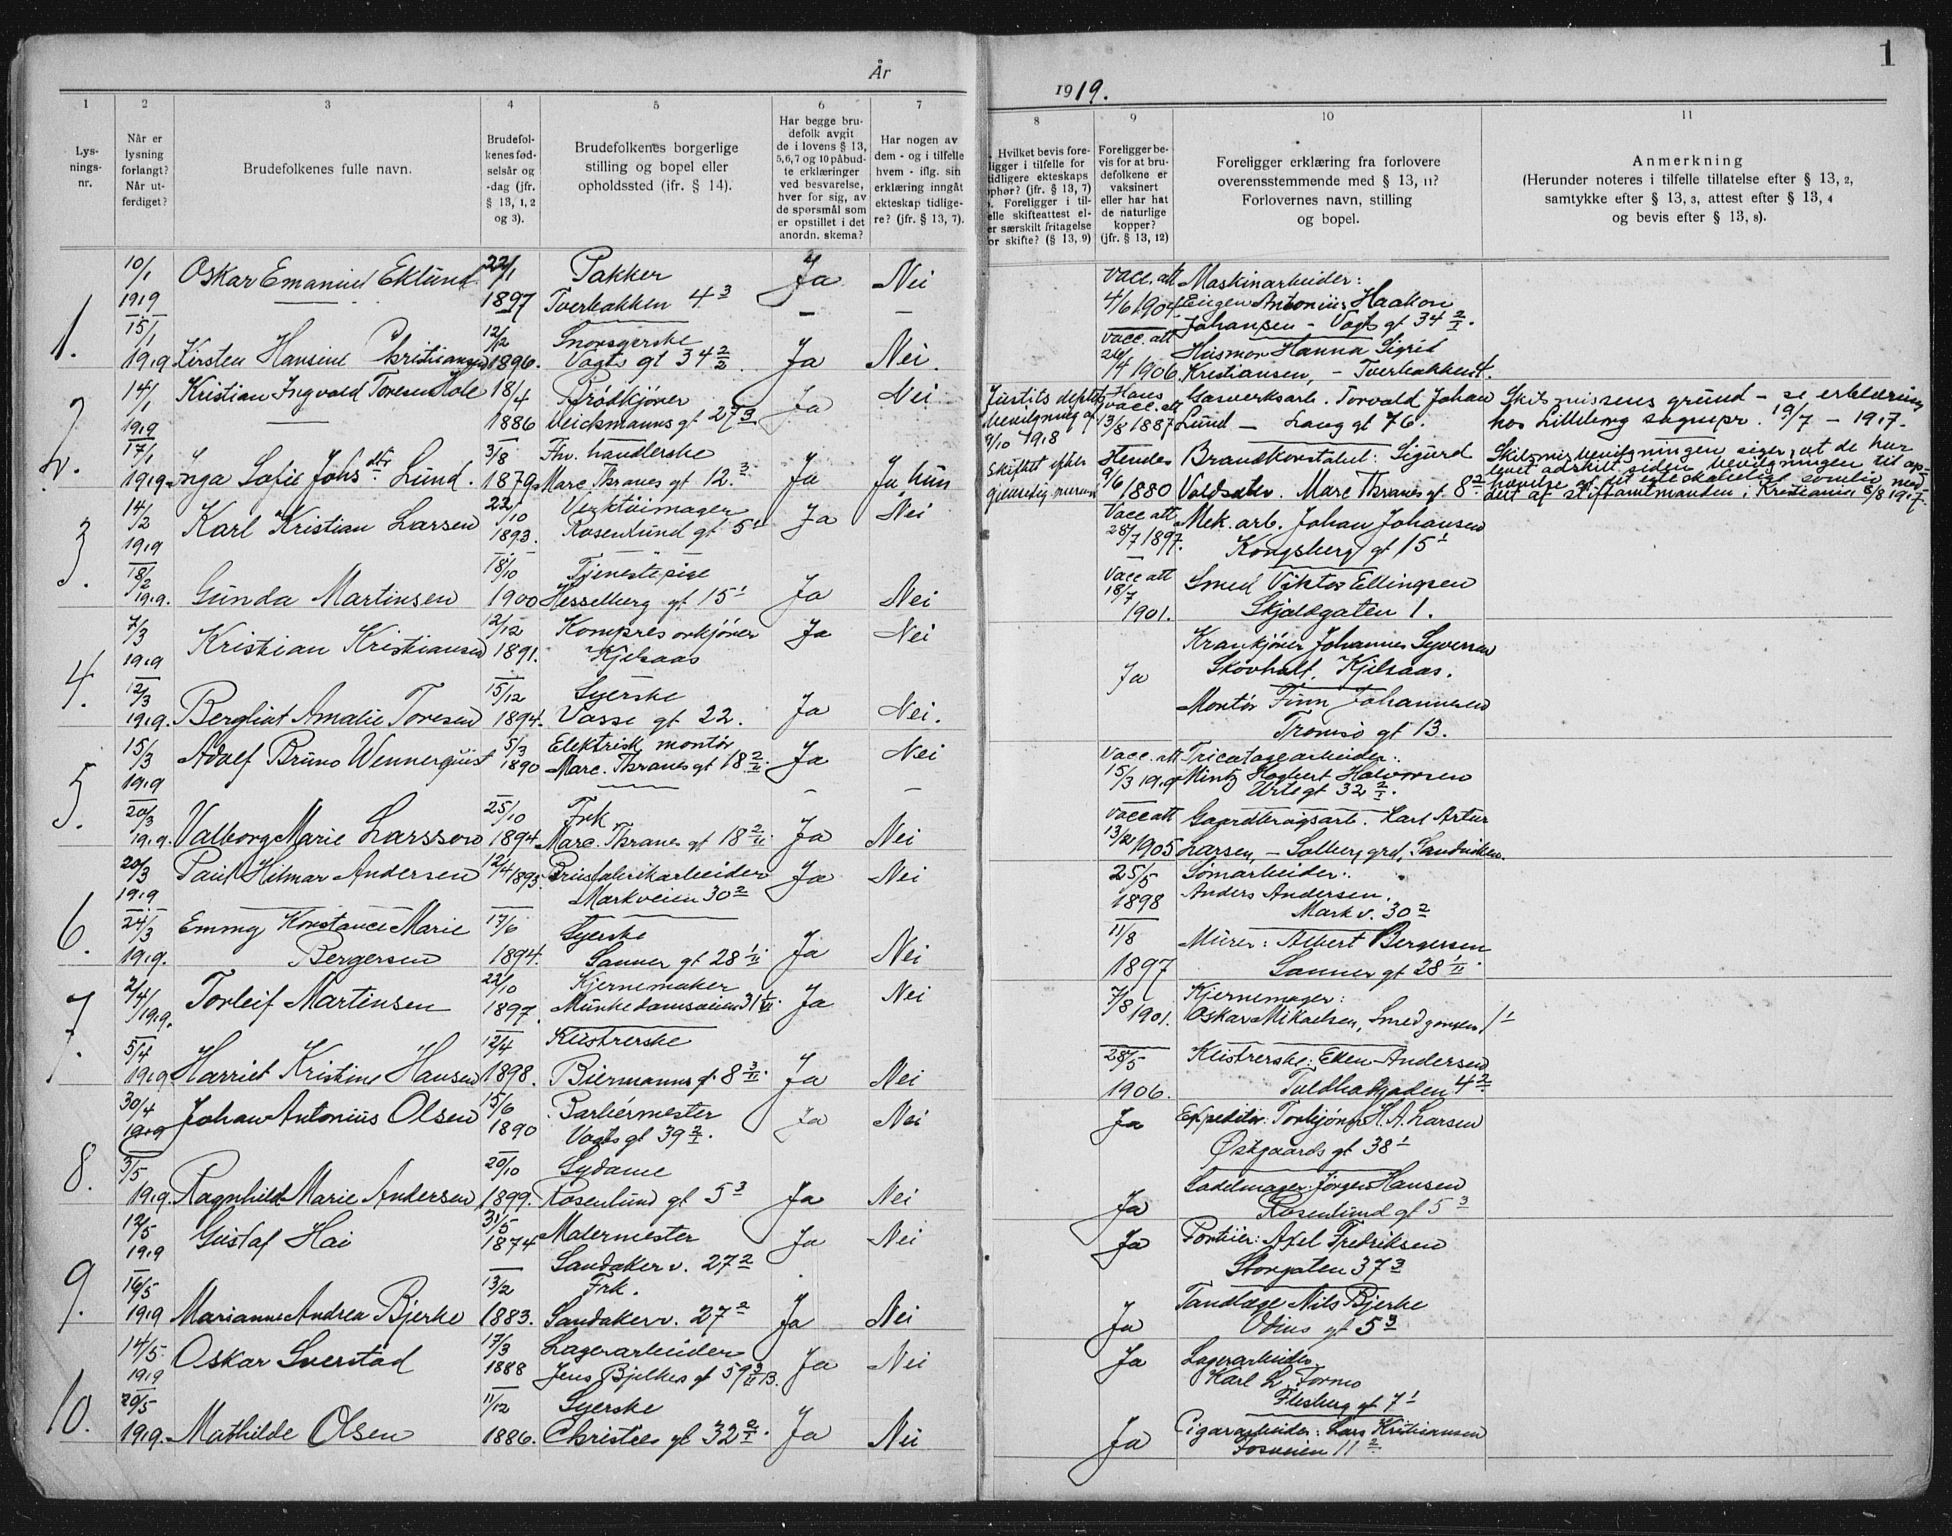 År
1919.
1
1
2
3
4
5
6
7
8
9
10
11
Lys-
nings-
nr.
Når er
lysning
forlangt?
Når ut-
ferdiget?
Brudefolkenes fulle navn.
Brudefol-
kenes fød-
selsår og
-dag (jfr.
§ 13, 1, 2
og 3).
Brudefolkenes borgerlige
stilling og bopel eller
opholdssted (ifr. § 14).
Har begge bru-
defolk avgit
de i lovens § 13,
5,6,7 og 10 påbud-
te erklæringer
ved besvarelse,
hver for sig, av
de spørsmål som
er opstillet i det
anordn. skema?
Har nogen av
dem - og i tilfelle
hvem - iflg. sin
erklæring inngått
ekteskap tidlige-
re? (jfr. § 13, 7).
. Hvilket bevis fore-
ligger i tilfelle for
tidligere ekteskaps
ophør? (jfr. § 13, 7)
. Foreligger i til-
elle skifteattest el-
er særskilt fritagelse
or skifte? (§ 13, 9)
Foreligger be-
vis for at bru-
defolkene er
vaksinert
eller har hat
de naturlige
kopper?
(jfr. § 13, 12)
Foreligger erklæring fra forlovere
overensstemmende med § 13, 11?
Forlovernes navn, stilling
og bopel.
Anmerkning
(Herunder noteres i tilfelle tillatelse efter § 13, 2,
samtykke efter § 13, 3, attest efter § 13, 4
og bevis efter § 13, 8).
1.
10/1 1919 Oskar Emanuel Eklund 22/1 1897 Pakker Ja Nei
Tverbakken 4 3
vacc. att 4/6 1904 Maskinarbeider:
Eugen Antonius Haakon
Johansen - Vogts gt 34 2/I
15/1 1919 Kirsten Hansine Christiansen 12/2 1896. Vogts gt 34 2/2 Ja Nei.
vacc. att 26/4 1906 Husmor Hanna Sigrid
Kristiansen, - Tverbakken 4.
2.
14/1 1919 Kristian Ingvald Torenshole 18/4 1886 Brødkjører Ja Nei
Deichmanns gt 27 3
Justits depts
bevilgning af
9/10 1918
Hans vacc. att 3/8 1887 Gasverksarb. Torvald Johan
Lund - Laug gt 76.
Skilsmissens grund - se erklæring
hos Lilleborg sognepr. 19/7 - 1917.
17/1 1919 Inga Sofie Johsdtr Lund. 3/8 1879 Fhv. handlerske
Marc. Thranes gt 12. 3 Ja Ja, hun
skiftet efter
Hendes 9/6 1880 Brandkonstabel: Sigurd
Voldsdtr. Marc Thranes gt 8 2
Skilsmisbevilgningen siger, at de har
levet adskilt siden bevilgningen til op-
hævelse af det ekteskabelige samliv med-
delt af stiftamtmanden i Kristiania 8/8 1917.
3.
14/2 1919 Karl Kristian Larsen 22/10 1893. Verktøimager Ja Nei
Rosenlund gt 5 1
Vacc att 28/7 1897. Mek. arb. Johan Johansen
Kongsberg gt 15 1
18/2 1919. Gunda Martinsen 18/10 1900 Tjenestepige
Hesselberg gt 15 1 Ja Nei
Vacc att 18/7 1901. Smed Viktor Ellingsen
Skjoldgaten 1.
4.
7/3 1919 Kristian Kristiansen 12/12 1891. Kompresorkjører Ja Nei
Kjelsaas
Ja
Krankjører Johannes Syversen
Skovhalt, Kjelsaas.
12/3 1919. Bergliot Amalie Toresen 15/12 1894. Syerske
Vosse gt 22. Ja Nei.
Montør Finn Johannesen
Tromsø gt 13.
5.
15/3 1919 Adolf Bruno Wennerquist 5/3 1890 Elektrisk montør
Marc. Thranes gt 18 2/II. Ja Nei
vacc. att 15/3 1919 Tricotagearbeider:
Mintz Hagbert Halvorsen
Urtegt 32 2/I.
20/3 1919. Valborg Marie Larsson 25/10 1894. Frk
Marc. Thranes gt 18 2/II Ja Nei
vacc att 13/2 1905 Gaardbrugsarb. Karl Artur
Larsen, - Solberg grd, Sandviken.
6.
20/3 1919 Paul Hilmar Andersen 12/4 1893. Ja Nei
Markveien 30 2
25/5 1898 Sømarbeider:
Anders Andersen.
Mark v. 30 2
24/3 1919. Emmy Konstance Marie
Bergersen 17/6 1894. Syerske
Sanner gt 28 1/II Ja Nei
11/8 1897 Murer: Albert Bergersen
Sanner gt 28 1/II.
7.
2/4 1919. Torleif Martinsen 22/10 1897. Kjernemaker
Munkedamsveien 31 Ja Nei
7/8 1901. Kjernemager:
Oskar Mikaelsen, Smedgangen 1 1
5/4 1919 Harriet Kristine Hansen 12/4 1898. Klistrerske
Biermanns gt 8 3/II. Ja Nei
28/5 1906. Klistrerske: Ellen Andersen
4 2
8.
30/4 1919 Johan Antonius Olsen 15/6 1890 Barbermester
Vogts gt 39 2/I. Ja Nei
Ja Expeditør: Torbjørn H. A. Larsen
Østgaards gt 38 1
3/5 1919. Ragnhild Marie Andersen 20/10 1899. Sydame
Rosenlund gt 5 3 Ja Nei
Ja Sadelmager: Jørgen Hansen
Rosenlund gt 5 3
9.
12/5 1919 Gustaf Hai 31/5 1874 Malermester
Sandaker v. 27 2 Ja Nei
Ja Portier: Axel Fredriksen
Storgaten 37 3
16/5 1919 Marianne Andrea Bjerke 13/2 1883. Frk.
Sandaker v. 27 2 Ja Nei
Ja Tandlæge Nils Bjerke
Odins gt 5 3
10.
14/5 1919 Oskar Sverstad 17/3 1888 Lagerarbeider
Jens Bjelkes gt 59 3/II B. Ja Nei
Ja Lagerarbeider
Karl L. Formo
Flesberg gt 7 1
20/5 1919. Mathilde Olsen 11/12 1886. Syerske
Christies gt 32 2/I. Ja Nei
Ja Cigararbeider: Lars Kristiansen
Fosveien 11 2